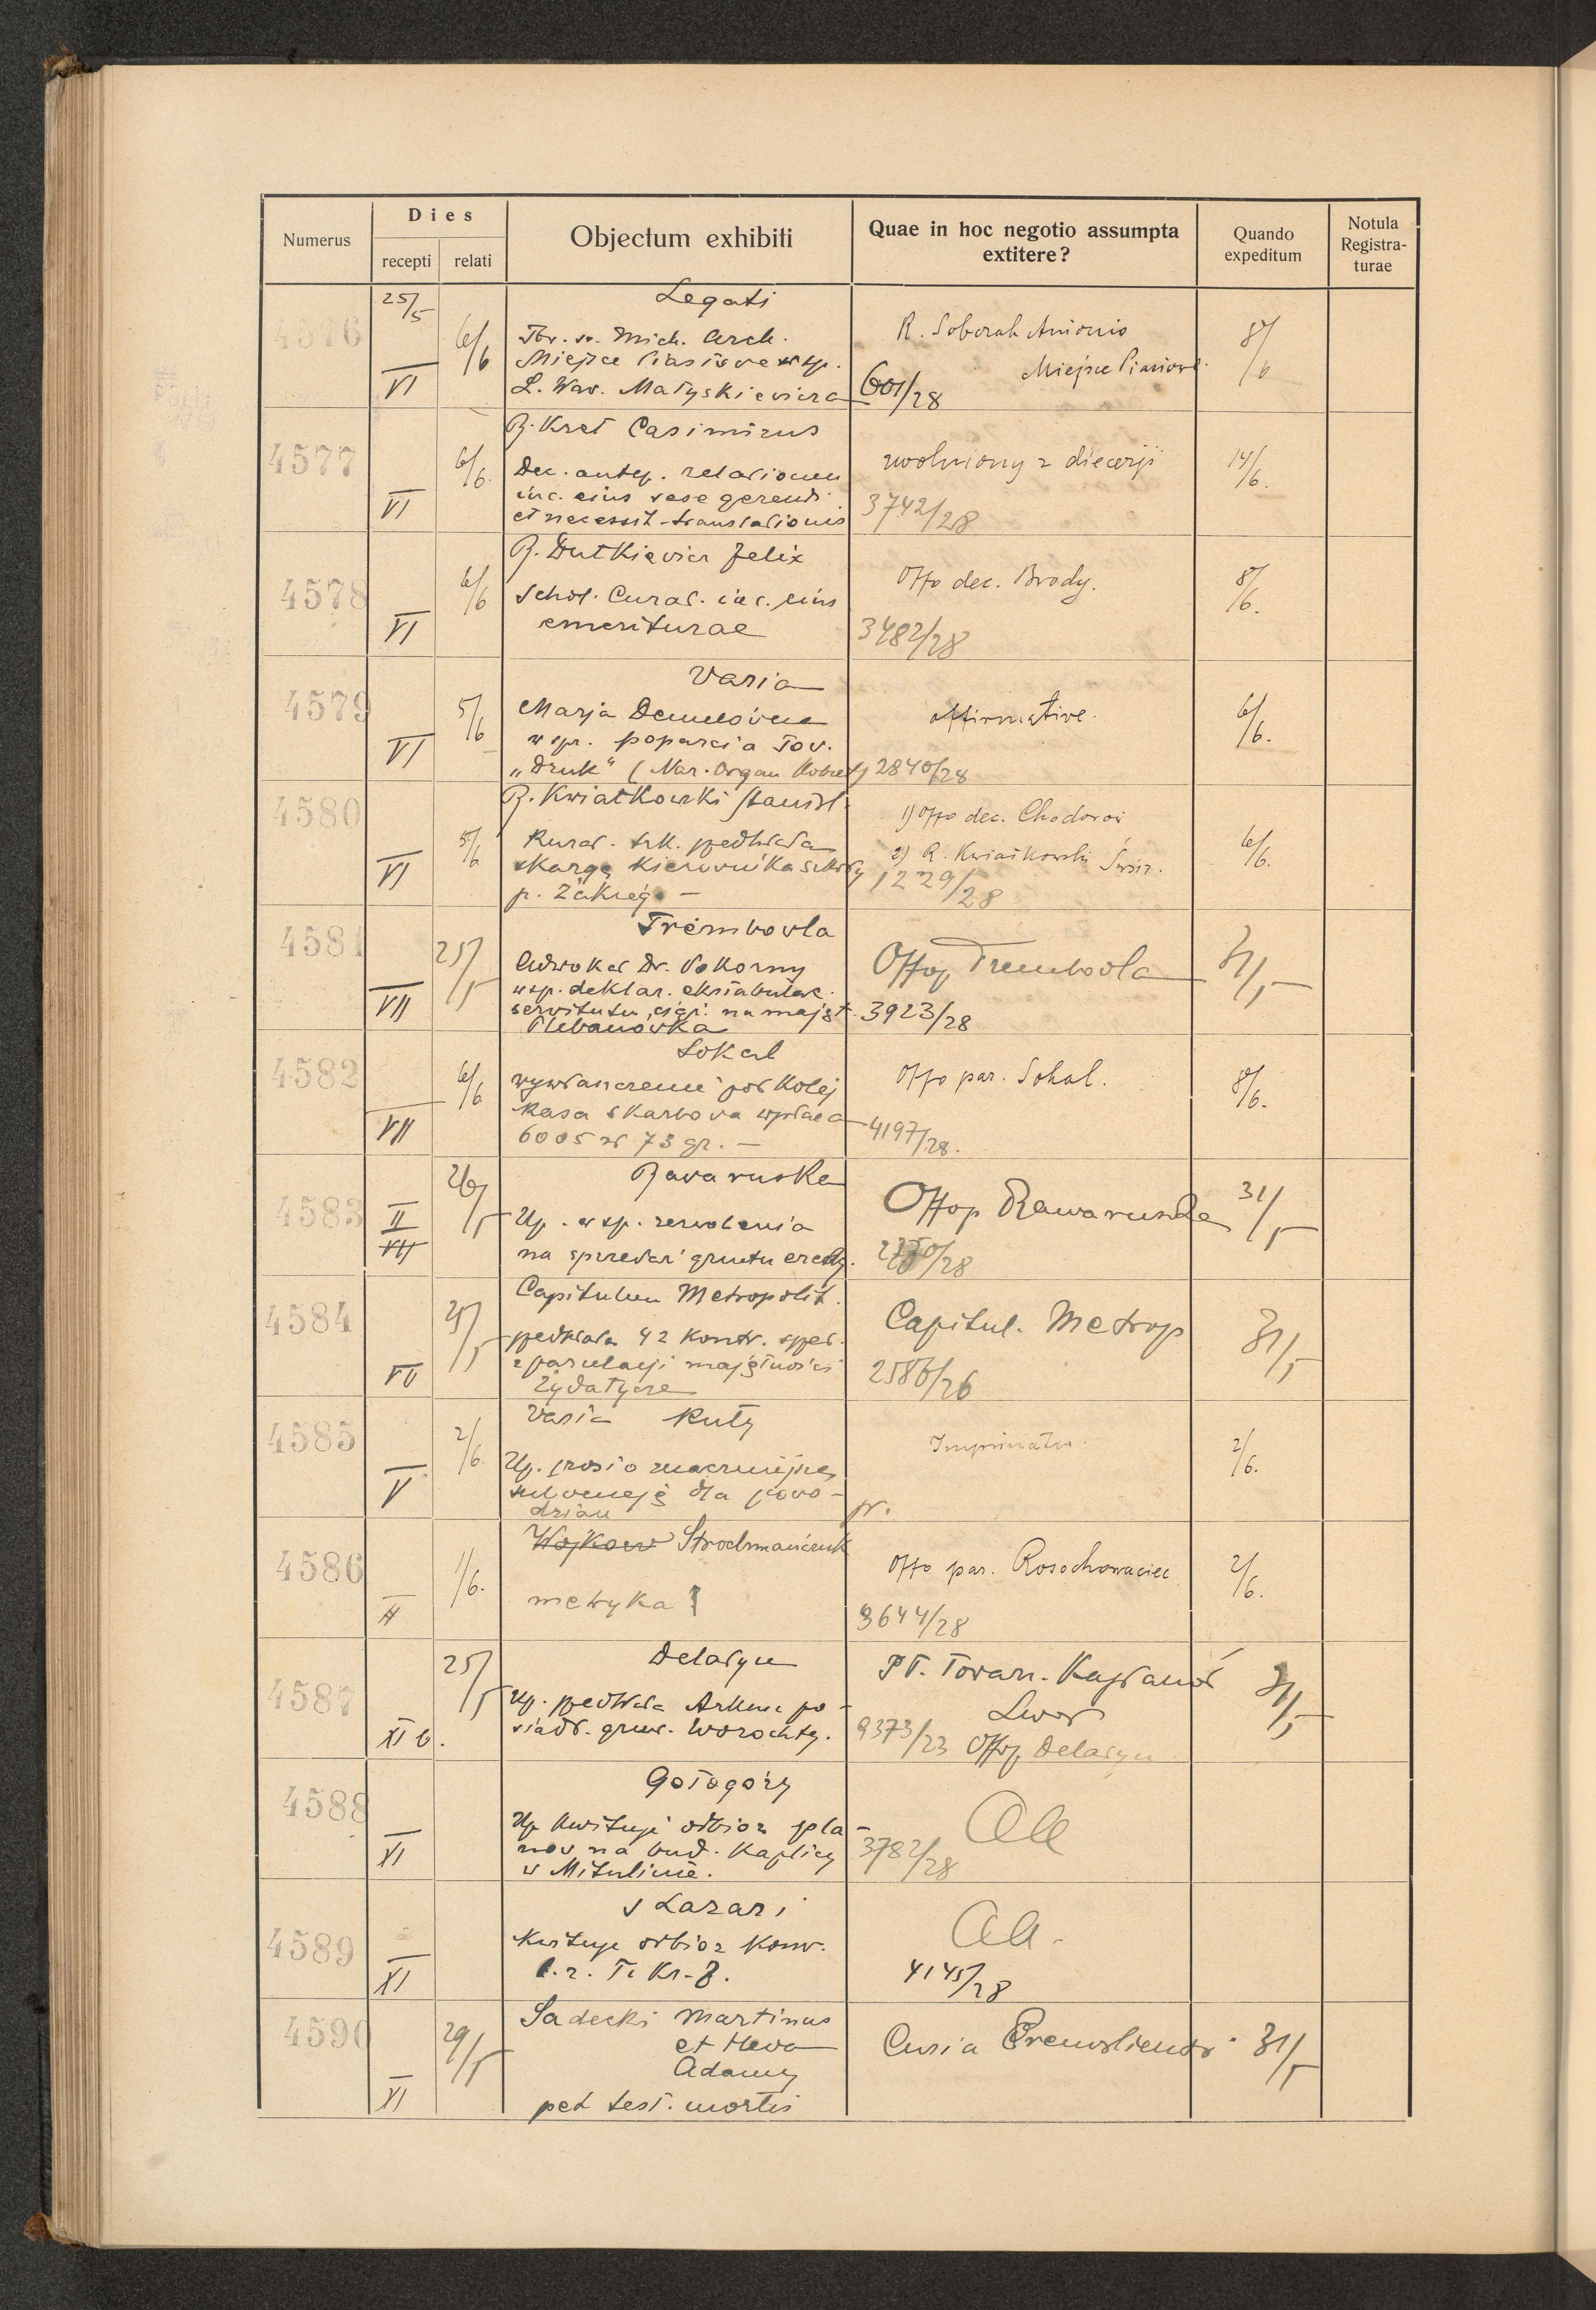 Numerus
Dies
recepti
relati
Objectum exhibiti
Quae in hoc negotio assumpta
extitere?
Quando
expeditum
Notula
Registra-
turae
4576
25/5
VI
6/6
Legati
Tow. św. Mich. Arch.
Miejsce Piastowe w sp.
L. Waw. Matyskiewicza
R. Soborak Antonio
Miejsce Piastowe.
601/28
8/6
4577
VI
6/6.
R. Kret Casimirus
Dec. antep. relationem
inc. eius sese gerendi
et necessit. translationis
zwolniony z diecezji
3742/28
14/6.
4578
VI
6/6
R. Dutkiewicz Felix
Schol. Curat. inc. eius
emeriturae
Offo dec. Brody.
3482/28
8/6.
4579
VI
5/6
Varia
Marja
w spr. poparcia Tow.
„Druk“ (Nar. Organ Kobiet)
affirmative.
2840/28
6/6.
4580
VI
5/6
R. Kwiatkowski Stanisł.
Kurat. szk. przedkłada
skargę kierownika szkoły
p.
1) Offo dec. Chodorów
2) R. Kwiatkowski Świrz.
1229/28
6/6.
4581
VII
25/5
Trembowla
Adwokat Dr. Pokorny
w sp. deklar. ekstabulac.
servitutu, na majęt.
Plebanówka
Offop Trembowla
3923/28
31/5
4582
VII
6/6
Sokal
wywłaszczenie pod kolej
Kasa skarbowa wpłaca
6005 zł 73 gr. —
Offo par. Sokal.
4197/28.
8/6.
4583
II
VII
26/5
Rawa ruska
Up. w sp. zezwolenia
na sprzedaż gruntu erecty.
Offop Rawa ruska
31/5
4584
VII
25/5
Capitulum Metropolit.
przedkłada 42 kontr. sprzed.
z parcelacji majętności
Żydatycze
Capitul. Metrop
2586/26
31/5
4585
V
2/6.
Varia Kuty
Up. prosi o znaczniejszą
subwencję dla powo-
dzian
Imprimatur.
pr.
2/6.
4586
II
1/6.
Wojkow Strochmańczuk
metryka
Offo par. Rosochowaciec
3644/28
2/6.
4587
XI b.
25/5
Delatyn
Up. przedkłada Arkusz po-
siadł. grun. Worochty.
PT. Towarz. Kasłanów
Lwów
9373/23 Offop Delatyn
31/5
4588
XI
Gołogóry
Up kwituje odbiór pla-
nów na bud. Kaplicy
w Mitulinie.
Aa
3782/28
4589
XI
s Lazari
Kwituje odbiór konw.
Aa.
4145/28
4590
XI
29/5
Sadecki Martinus
et Heva
Adamy
pet test. mortis
Curia Premisliens.
31/5